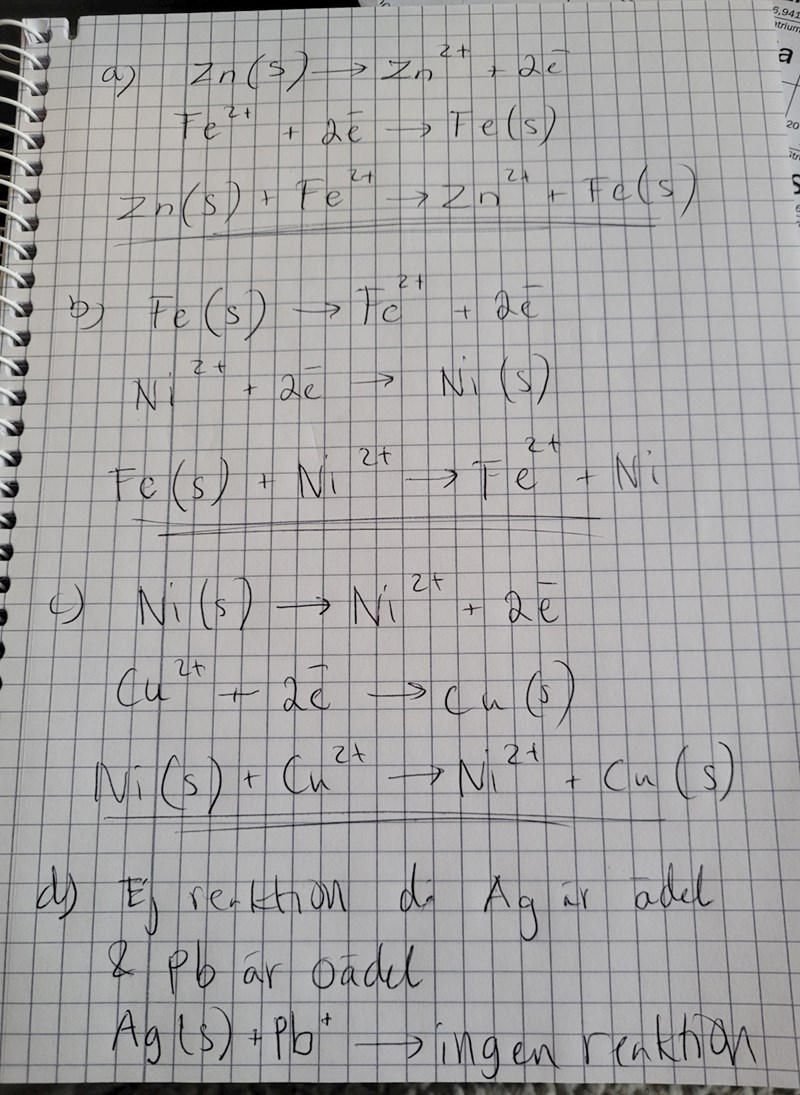 a) Zn(s) → Zn²⁺ + 2e̅
Fe²⁺ + 2e̅ → Fe(s)
Zn(s) + Fe²⁺ → Zn²⁺ + Fe(s)
b) Fe(s) → Fe²⁺ + 2e̅
Ni²⁺ + 2e̅ → Ni(s)
Fe(s) + Ni²⁺ → Fe²⁺ + Ni
c) Ni(s) → Ni²⁺ + 2e̅
Cu²⁺ + 2e̅ → Cu(s)
Ni(s) + Cu²⁺ → Ni²⁺ + Cu(s)
d) Ej reaktion då Ag är ädel
& Pb är oädel
Ag(s) + Pb⁺ → ingen reaktion
5,941
a
20